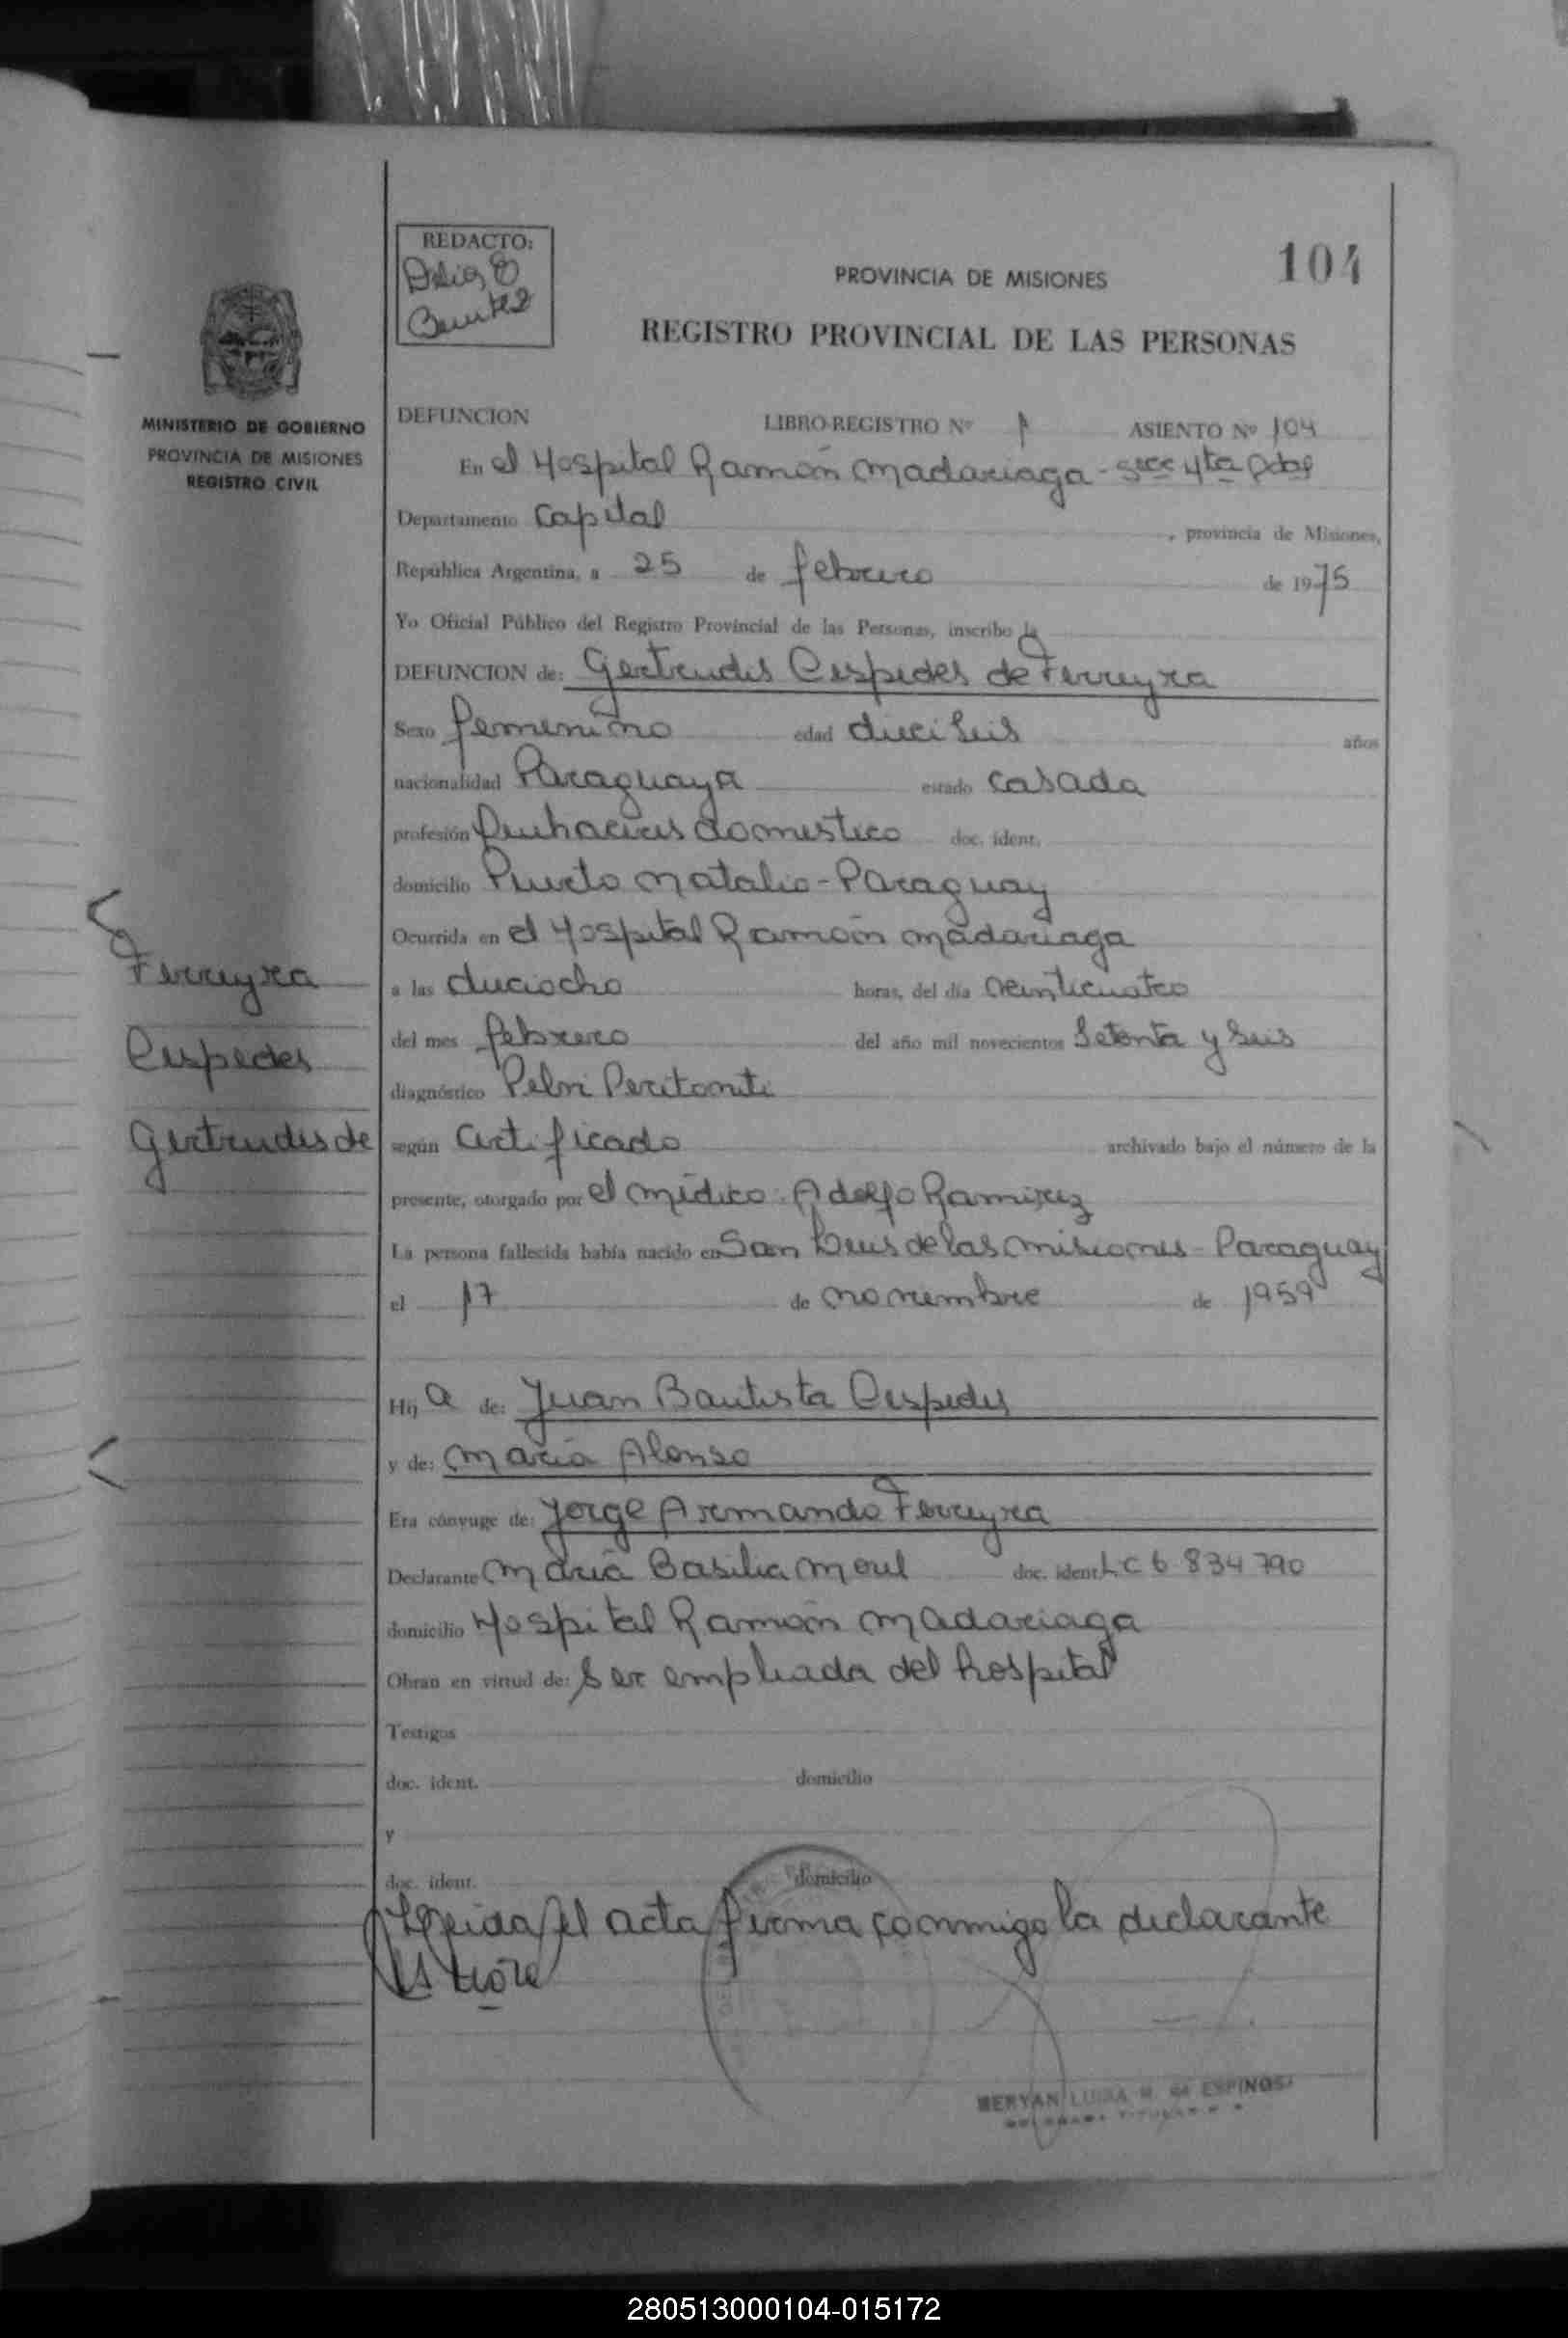 REDACTO:
Delia E
Benitez
104
PROVINCIA DE MISIONES
REGISTRO PROVINCIAL DE LAS PERSONAS
MINISTERIO DE GOBIERNO
PROVINCIA DE MISIONES
REGISTRO CIVIL
DEFUNCION LIBRO-REGISTRO Nº 1 ASIENTO Nº 104
En el Hospital Ramón Madariaga - Secc 4ta Pdas
Departamento Capital, provincia de Misiones,
República Argentina, a 25 de febrero de 1975
Yo Oficial Público del Registro Provincial de las Personas, inscribo la
DEFUNCION de: Gertrudis Cespedes de Ferreyra
Sexo femenino edad dieciseis años
nacionalidad Paraguaya estado casada
profesión quehaceres domestico doc. ident.
domicilio Puerto Natalio - Paraguay
Ocurrida en el Hospital Ramón Madariaga
a las dieciocho horas, del día veinticuatro
del mes febrero del año mil novecientos Setenta y Seis
diagnóstico Pelvi Peritoniti
según certificado archivado bajo el número de la
presente, otorgado por el médico: Adolfo Ramirez
La persona fallecida había nacido en San Luis de las Misiones - Paraguay
el 17 de noviembre de 1959
Hij a de: Juan Bautista Cespedes
y de: María Alonso
Era cónyuge de: Jorge Armando Ferreyra
Declarante María Basilia Morel doc. ident. LC 6 834 790
domicilio Hospital Ramón Madariaga
Obran en virtud de: Ser empleada del hospital
Testigos
doc. ident. domicilio
y
doc. ident. domicilio
Leida el acta firma conmigo la declarante
Ferreyra
Cespedes
Gertrudis de
MERYAN LUISA M. de ESPINOSA
280513000104-015172